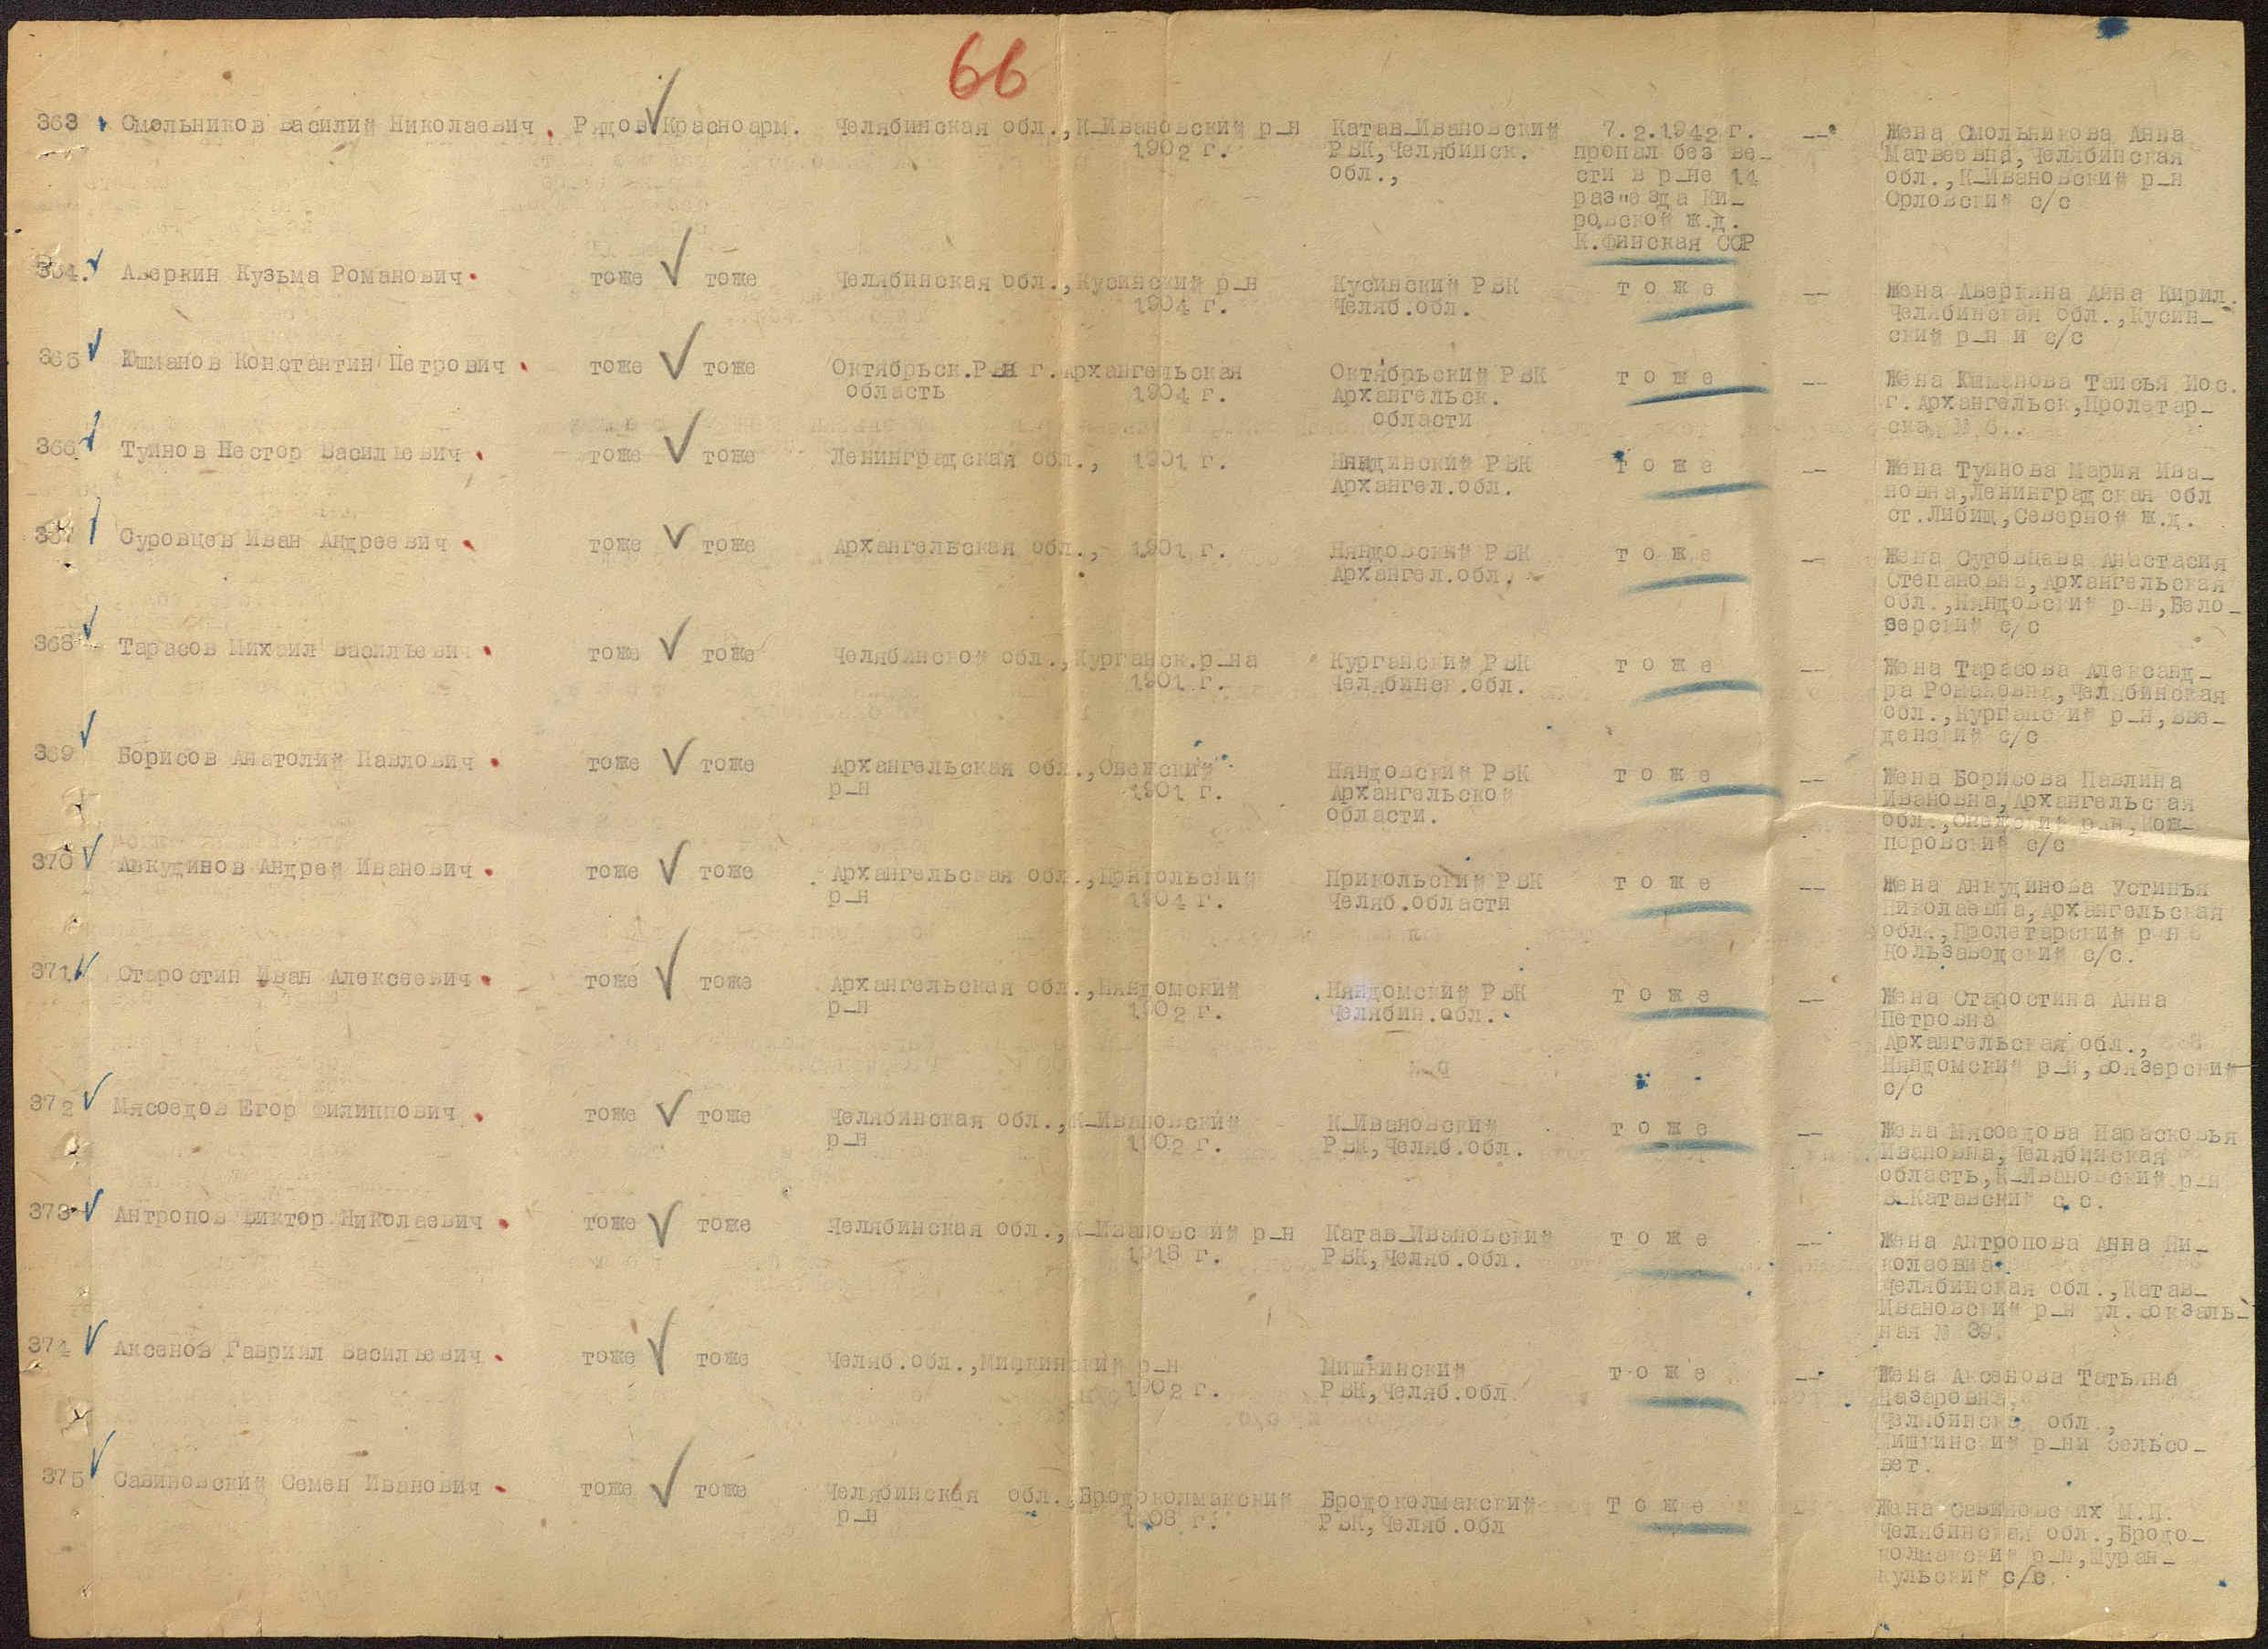 66
363 Смольников Василий Николаевич. Рядов Красноарм. Челябинская обл., К_Ивановский р_н 1902 г. Катав_Ивановский РВК, Челябинск. обл., 7.2.1942 г. пропал без ве_ сти в р_не 14 раз"езда Ки_ ровской ж.д. К.Финская ССР -- Жена Смольникова Анна Матвеевна, Челябинская обл., К_Ивановский р_н Орловский с/с
364. Аверкин Кузьма Романович тоже тоже Челябинская обл., Кусинский р_н 1904 г. Кусинский РВК Челяб.обл. тоже -- Жена Аверкина Анна Кирил. Челябинская обл., Кусин_ ский р_н и с/с
365 Юшманов Константин Петрович тоже тоже Октябрьск.Р_н г.Архангельская область 1904 г. Октябрьский РВК Архангельск. области тоже -- Жена Юшманова Таисья Иос. г.Архангельск, Пролетар_
366 Туинов Нестор Васильевич тоже тоже Ленинградская обл., 1901 г. РВК Архангел.обл. тоже -- Жена Туинова Мария Ива_ новна, Ленинградская обл ст.Либищ, Северной ж.д.
367 Суровцев Иван Андреевич тоже тоже Архангельская обл., 1901 г. Няндовский РВК Архангел.обл. тоже -- Жена Суровцева Анастасия Степановна, Архангельская обл., Няндовский р_н, Бело_ зерский с/с
368 Тарасов Михаил Васильевич тоже тоже Челябинской обл., Курганск.р_на 1901 г. Курганский РВК Челябинск.обл. тоже -- Жена Тарасова Александ_ ра Романовна, Челябинская обл., Курганский р_н, Вве_ денский с/с
369 Борисов Анатолий Павлович тоже тоже Архангельская обл., р_н 1901 г. Няндовский РВК Архангельской области. тоже -- Жена Борисова Павлина Ивановна, Архангельская обл., р_н, поровский с/с
370 Анкудинов Андрей Иванович тоже тоже Архангельская обл., Прикольский р_н 1904 г. Прикольский РВК Челяб.области тоже -- Жена Анкудинова Устинья Николаевна, Архангельская обл., Пролетарский р_н Кользаводский с/с.
371. Старостин Иван Алексеевич тоже тоже Архангельская обл., Няндомский р_н 1902 г. Няндомский РВК Челябин.обл. тоже -- Жена Старостина Анна Петровна Архангельская обл., Няндомский р_н, Воязерский с/с
372 Мясоедов Егор Филиппович тоже тоже Челябинская обл., К_Ивановский р_н 1902 г. К_Ивановский РВК, Челяб.обл. тоже -- Жена Мясоедова Парасковья Ивановна, Челябинская область, К_Ивановский р_н В_Катавский с.с.
373 Антропов Виктор Николаевич тоже тоже Челябинская обл., К_Ивановский р_н 1918 г. Катав_Ивановский РВК, Челяб.обл. тоже -- Жена Антропова Анна Ни_ колаевна Челябинская обл., Катав_ Ивановский р_н ул.Вокзаль_ ная № 39.
374 Аксенов Гавриил Васильевич тоже тоже Челяб.обл., Мишкинский р_н 1902 г. Мишкинский РВК, Челяб.обл тоже -- Жена Аксенова Татьяна Назаровна, обл., Мишкинский р_н и сельсо_ вет.
375 Савиновский Семен Иванович тоже тоже Челябинская обл., Бродоколмакский р_н 1908 г. Бродоколмакский РВК, Челяб.обл тоже Жена Савиновских М.П. Челябинская обл., Бродо_ колмакский р_н, Шуран_ кульский с/с.